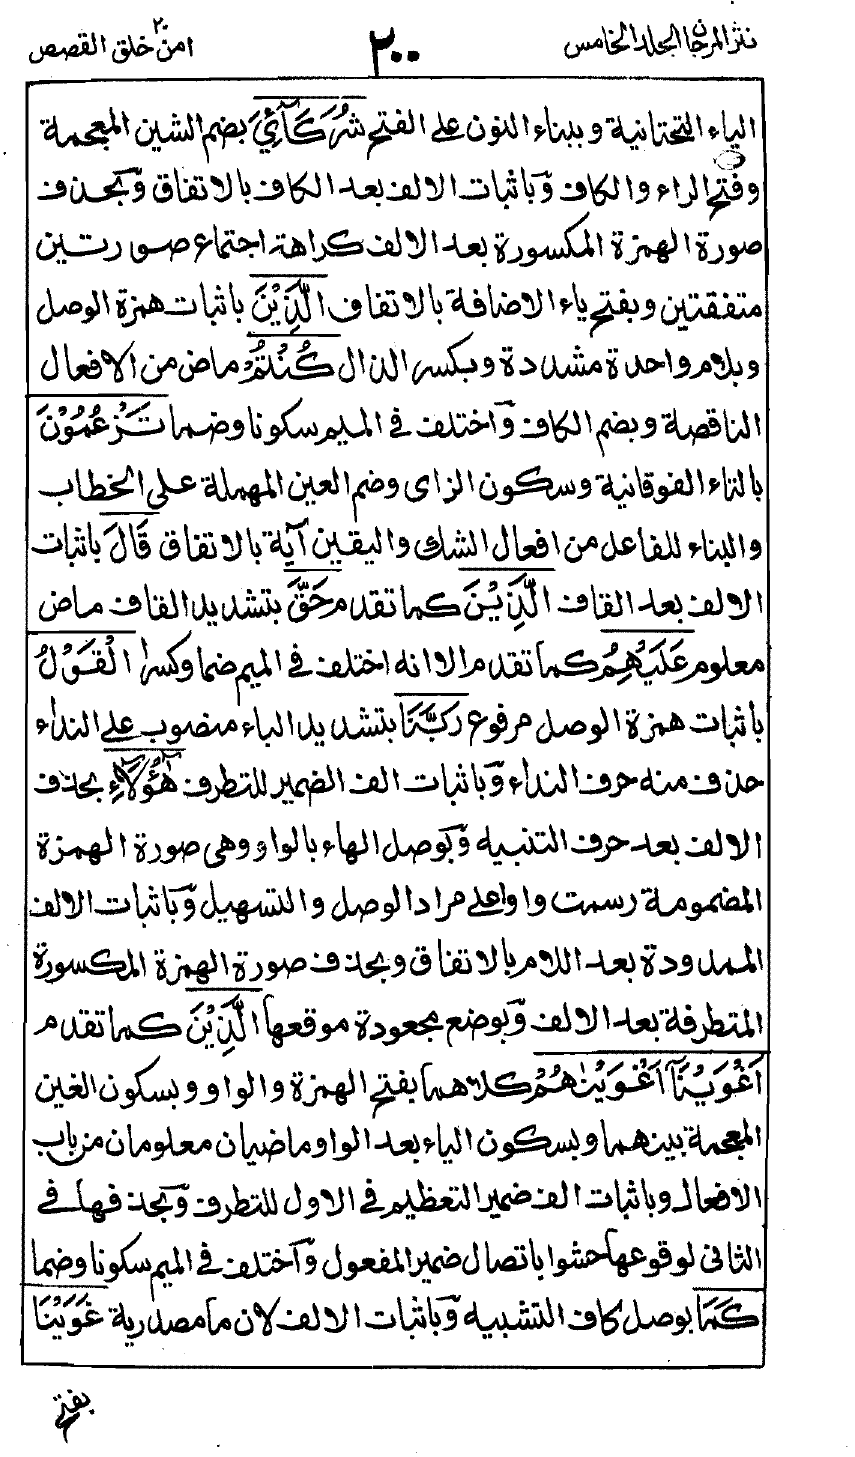 نثر المرجان الجلد الخامس ٢٠٠ امن خلق ٢٠ القصص
الياء التحتانية و ببناء النون على الفتح شُرَكَآءِيَ بضم الشين المعجمة
وفتح الراء والكاف وّباثبات الالف بعد الكاف بالاتفاق وّبحذف
صورة الهمزة المكسورة بعد الالف كراهة اجتماع صورتين
متفقتين وبفتح ياء الاضافة بالاتفاق الَّذِيْنَ باثبات همزة الوصل
وبلام واحدة مشددة وبكسر الذال كُنْتُمْ ماض من الافعال
الناقصة وبضم الكاف وّاختلف في الميم سكونا وضما تَزْعُمُوْنَ
بالتاء الفوقانية وسكون الزاى وضم العين المهملة على الخطاب
والبناء للفاعل من افعال الشك واليقين آية بالاتفاق قَالَ باثبات
الالف بعد القاف الَّذِيْنَ كما تقدم حَقَّ بتشديد القاف ماض
معلوم عَلَيْهِمُ كما تقدم الا انه اختلف في الميم ضما وكسرا الْقَوْلُ
باثبات همزة الوصل مرفوع رَبَّنَا بتشديد الباء منصوب على النداء
حذف منه حرف النداء وّباثبات الف الضمير للتطرف هٰٓؤُلَآءِ بحذف
الالف بعد حرف التنبيه وّبوصل الهاء بالواو وهى صورة الهمزة
المضمومة رسمت واوا على مراد الوصل والتسهيل وّباثبات الالف
الممدودة بعد اللام بالاتفاق وبحذف صورة الهمزة المكسورة
المتطرفة بعد الالف وّبوضع مجعودة موقعها الَّذِيْنَ كما تقدم
اَغْوَيْنَآ اَغْوَيْنٰهُمْ كلاهما بفتح الهمزة والواو وبسكون الغين
المعجمة بينهما وبسكون الياء بعد الواو ماضيان معلومان من باب
الافعال وباثبات الف ضمير التعظيم في الاول للتطرف وّبحذفها في
الثانى لوقوعها حشوا باتصال ضمير المفعول وّاختلف في الميم سكونا وضما
كَمَا بوصل كاف التشبيه وّباثبات الالف لان ما مصدرية غَوَيْنَا
بفتح